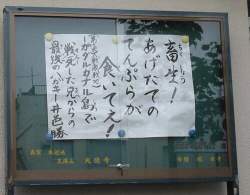 ちくしょう
畜生!
あげたての
てんぷらが
食いてえ!
ガダルカナル島で
戦死した兄からの
最後のハガキ 井邑勝